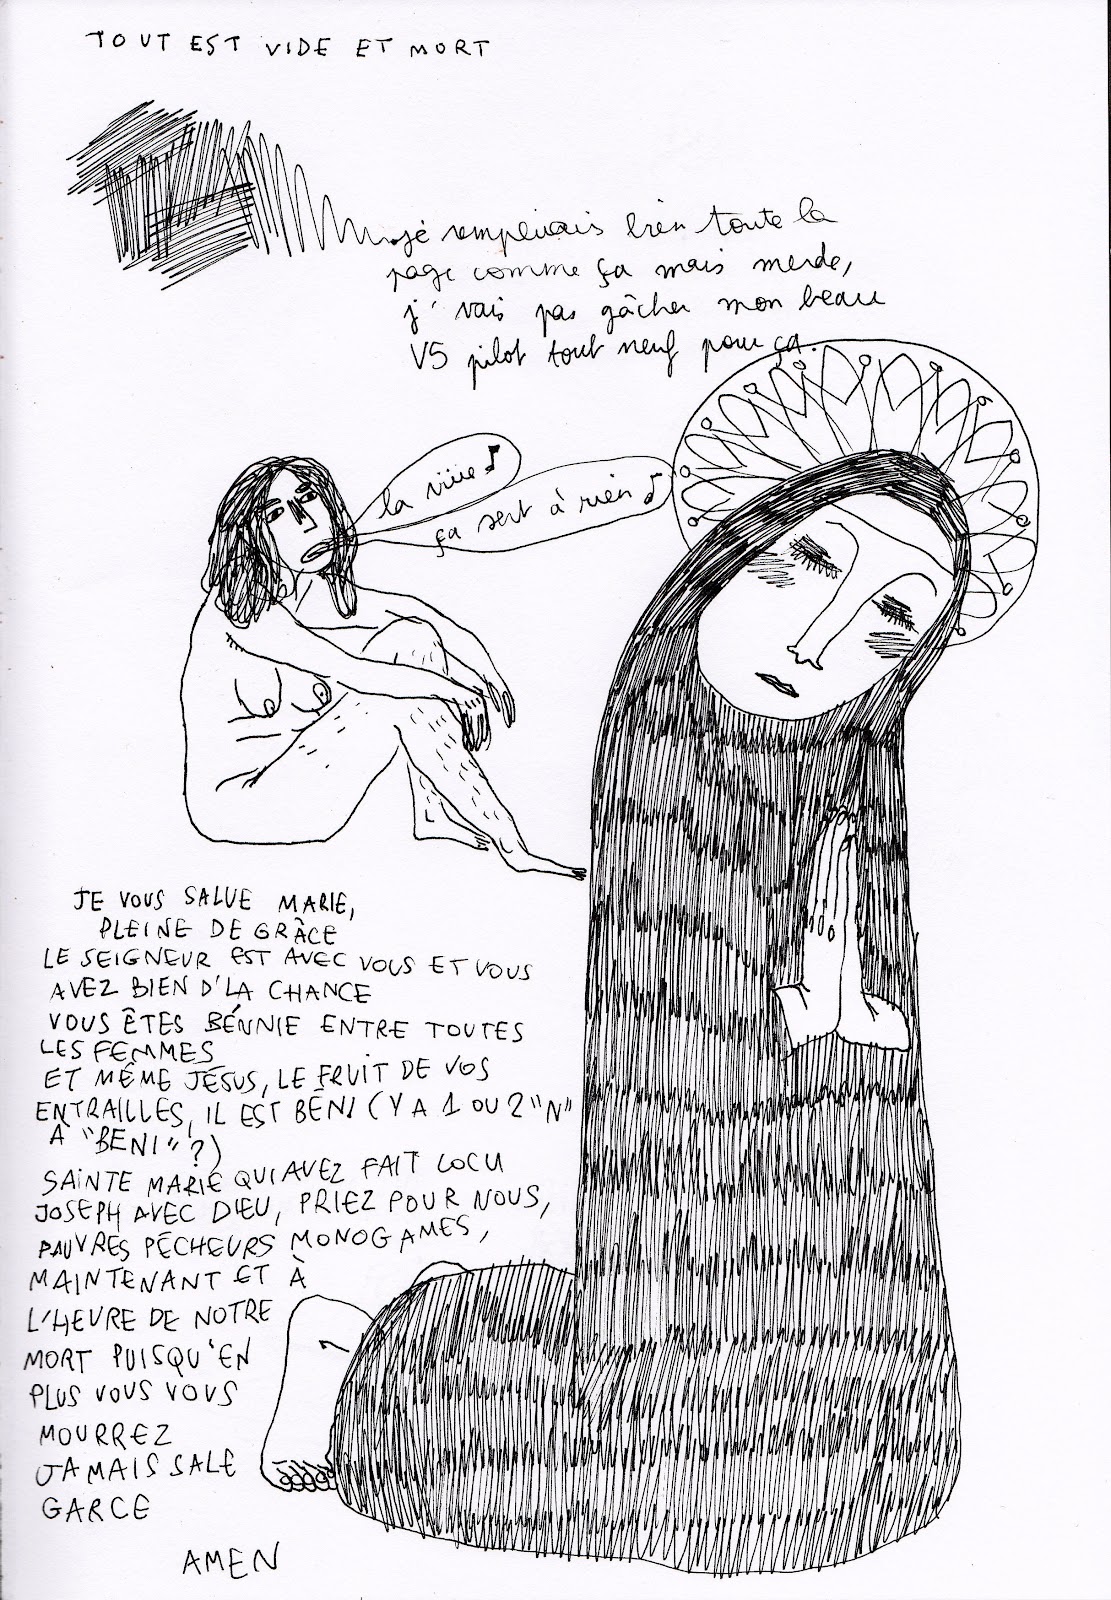 TOUT EST VIDE ET MORT
je remplirais bien toute la
page comme ça mais merde,
j'vais pas gâcher mon beau
V5 pilot tout neuf pour ça.
la viiie ♪
ça sert à rien ♪
JE VOUS SALUE MARIE,
PLEINE DE GRÂCE
LE SEIGNEUR EST AVEC VOUS ET VOUS
AVEZ BIEN D'LA CHANCE
VOUS ÊTES BÉNNIE ENTRE TOUTES
LES FEMMES
ET MÊME JÉSUS, LE FRUIT DE VOS
ENTRAILLES, IL EST BÉNI (Y A 1 OU 2 "N"
À "BENI" ?)
SAINTE MARIE QUI AVEZ FAIT COCU
JOSEPH AVEC DIEU, PRIEZ POUR NOUS,
PAUVRES PÉCHEURS MONOGAMES,
MAINTENANT ET À
L'HEURE DE NOTRE
MORT PUISQU'EN
PLUS VOUS VOUS
MOURREZ
JAMAIS SALE
GARCE
AMEN